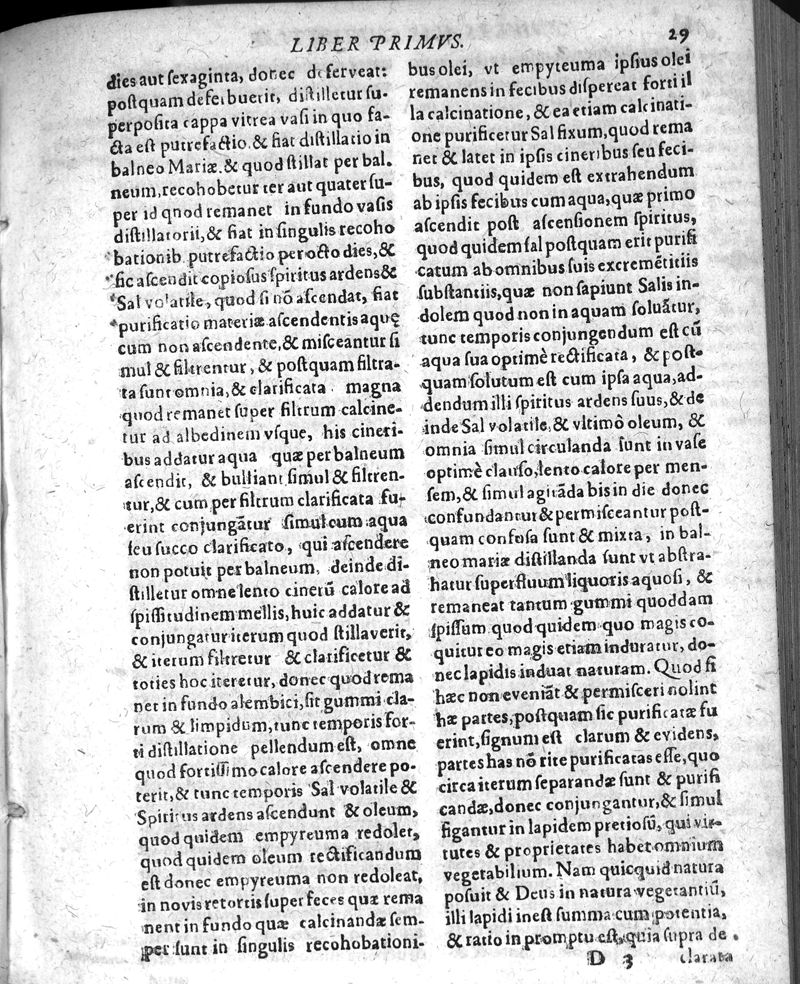 LIBER PRIMVS.
29
dies aut sexaginta, donec deferveat:
postquam deferbuerit, distilletur su-
perposita cappa vitrea vasi in quo fa-
cta est putrefactio & fiat distillatio in
balneo Mariæ. & quod stillat per bal-
neum, recohobetur ter aut quater su-
per id qnod remanet in fundo vasis
distillatorii, & fiat in singulis recoho
bationib. putrefactio per octo dies, &
sic ascendit copiosus spiritus ardens &
Sal volatile, quod si nõ ascendat, fiat
purificatio materiæ ascendentis aquę
cum non ascendente, & misceantur si
mul & filtrentur, & postquam filtra-
ta sunt omnia, & clarificata magna
quod remanet super filtrum calcine-
tur ad albedinem vsque, his cineri-
bus addatur aqua quæ per balneum
ascendit, & bulliant simul & filtren-
tur, & cum per filtrum clarificata fu-
erint conjungãtur simul cum aqua
seu succo clarificato, qui ascendere
non potuit per balneum, deinde di-
stilletur omne lento cinerũ calore ad
spissitudinem mellis, huic addatur &
conjungatur iterum quod stillaverit,
& iterum filtretur & clarificetur &
toties hoc iteretur, donec quod rema
net in fundo alembici, sit gummi cla-
rum & limpidum, tunc temporis for-
ti distillatione pellendum est, omne
quod fortissimo calore ascendere po-
terit, & tunc temporis Sal volatile &
Spiritus ardens ascendunt & oleum,
quod quidem empyreuma redolet,
quod quidem oleum rectificandum
est donec empyreuma non redoleat,
in novis retortis super feces quæ rema
nent in fundo quæ calcinandæ sem-
per sunt in singulis recohobationi-
bus olei, vt empyteuma ipsius olei
remanens in fecibus dispereat forti il
la calcinatione, & ea etiam calcinati-
one purificetur Sal fixum, quod rema
net & latet in ipsis cineribus seu feci-
bus, quod quidem est extrahendum
ab ipsis fecibus cum aqua, quæ primo
ascendit post ascensionem spiritus,
quod quidem sal postquam erit purifi
catum ab omnibus suis excremẽtitiis
substantiis, quæ non sapiunt Salis in-
dolem quod non in aquam soluãtur,
tunc temporis conjungendum est cũ
aqua sua optimè rectificata, & post-
quam solutum est cum ipsa aqua, ad-
dendum illi spiritus ardens suus, & de
inde Sal volatile, & vltimò oleum, &
omnia simul circulanda sunt in vase
optimè clauso, lento calore per men-
sem, & simul agitãda bis in die donec
confundantur & permisceantur post-
quam confosa sunt & mixta, in bal-
neo mariæ distillanda sunt vt abstra-
hatur superfluum liquoris aquosi, &
remaneat tantum gummi quoddam
spissum quod quidem quo magis co-
quitur eo magis etiam induratur, do-
nec lapidis induat naturam. Quod si
hæc non eveniãt & permisceri nolint
hæ partes, postquam sic purificatæ fu
erint, signum est clarum & evidens,
partes has nõ rite purificatas esse, quo
circa iterum separandæ sunt & purifi
candæ, donec conjungantur, & simul
figantur in lapidem pretiosũ, qui vir-
tutes & proprietates habet omnium
vegetabilium. Nam quicquid natura
posuit & Deus in natura vegetantiũ,
illi lapidi inest summa cum potentia,
& ratio in promptu est, quia supra de
D 3 clarata